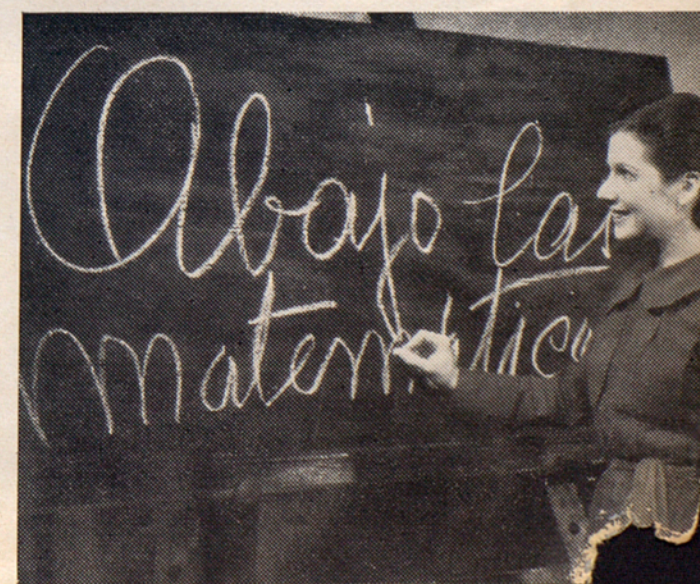 Abajo las
matemáticas